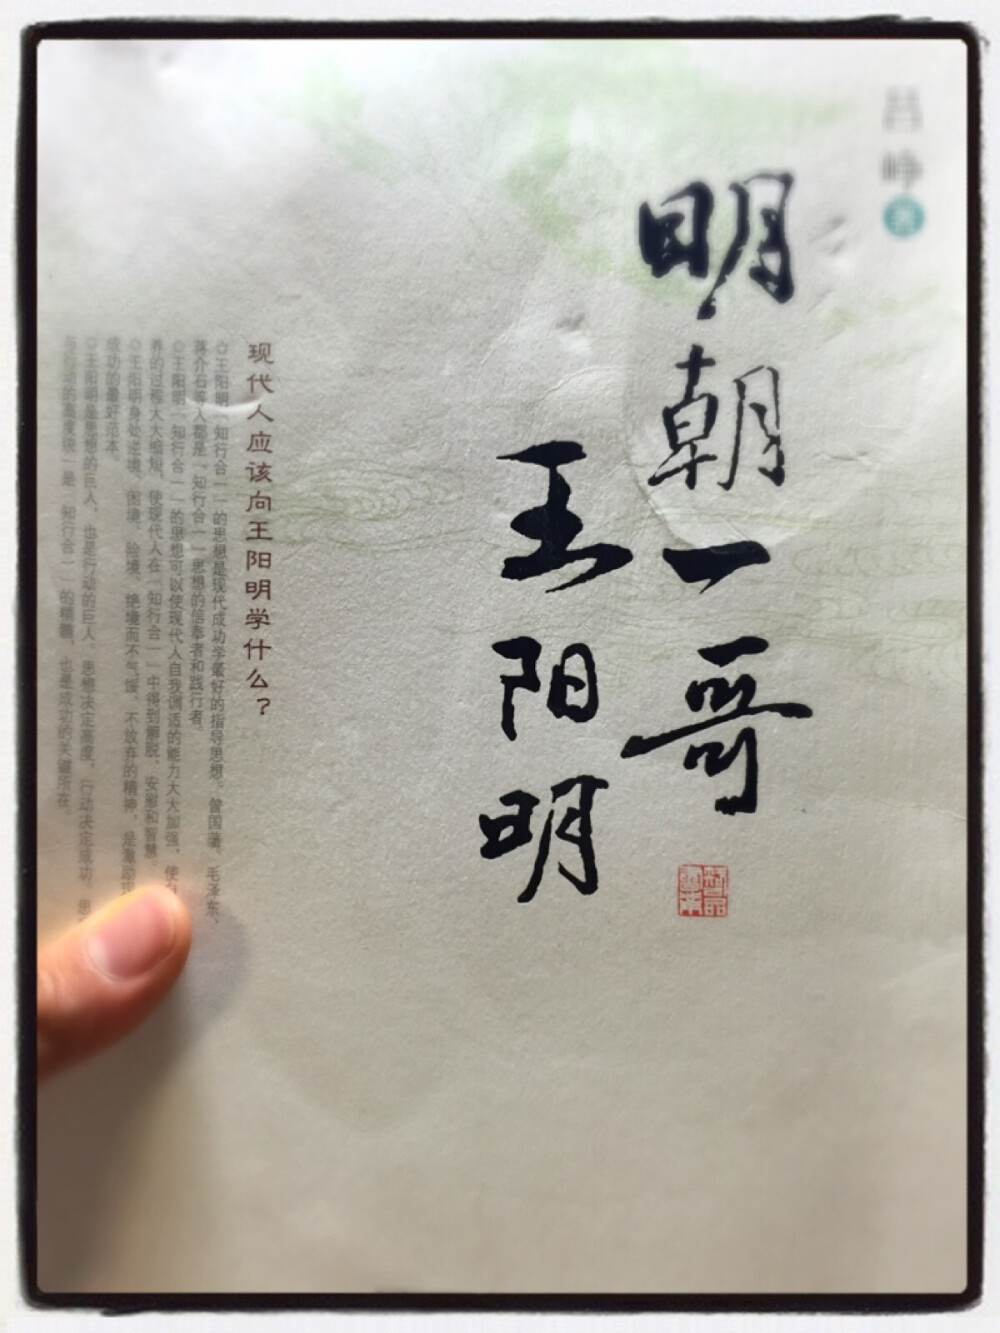 吕峥
著
明朝一哥
王阳明
现代人应该向王阳明学什么？
◎王阳明“知行合一”的思想是现代成功学最好的指导思想。曾国藩、毛泽东、
蒋介石等人都是“知行合一”思想的信奉者和践行者。
◎王阳明“知行合一”的思想可以使现代人自我调适的能力大大加强，使
养的过程大大缩短，使现代人在“知行合一”中得到解脱、安慰和智慧。
◎王阳明身处逆境、困境、险境、绝境而不气馁、不放弃的精神，是激励
成功的最好范本。
◎王阳明是思想的巨人，也是行动的巨人。思想决定高度，行动决定成功，思
与行动的高度统一是“知行合一”的精髓，也是成功的关键所在。